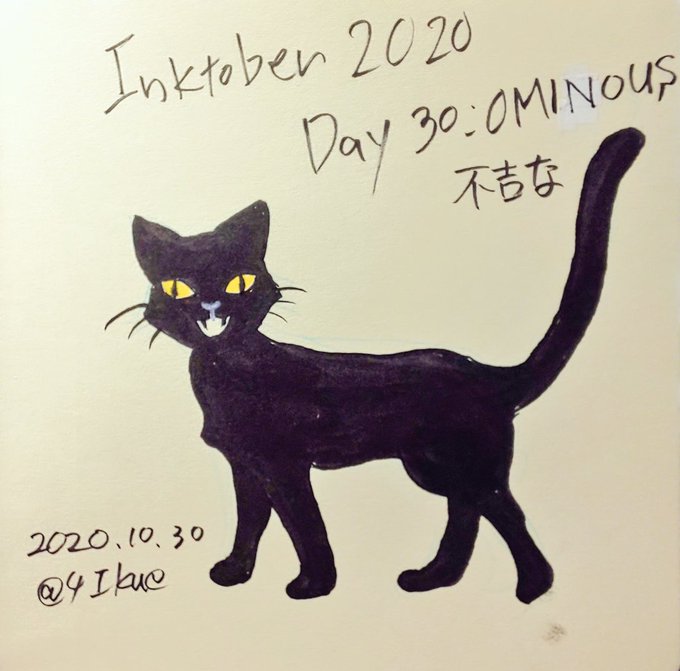 Inktober 2020
Day 30: OMINOUS
不吉な
2020.10.30
@4Ikue